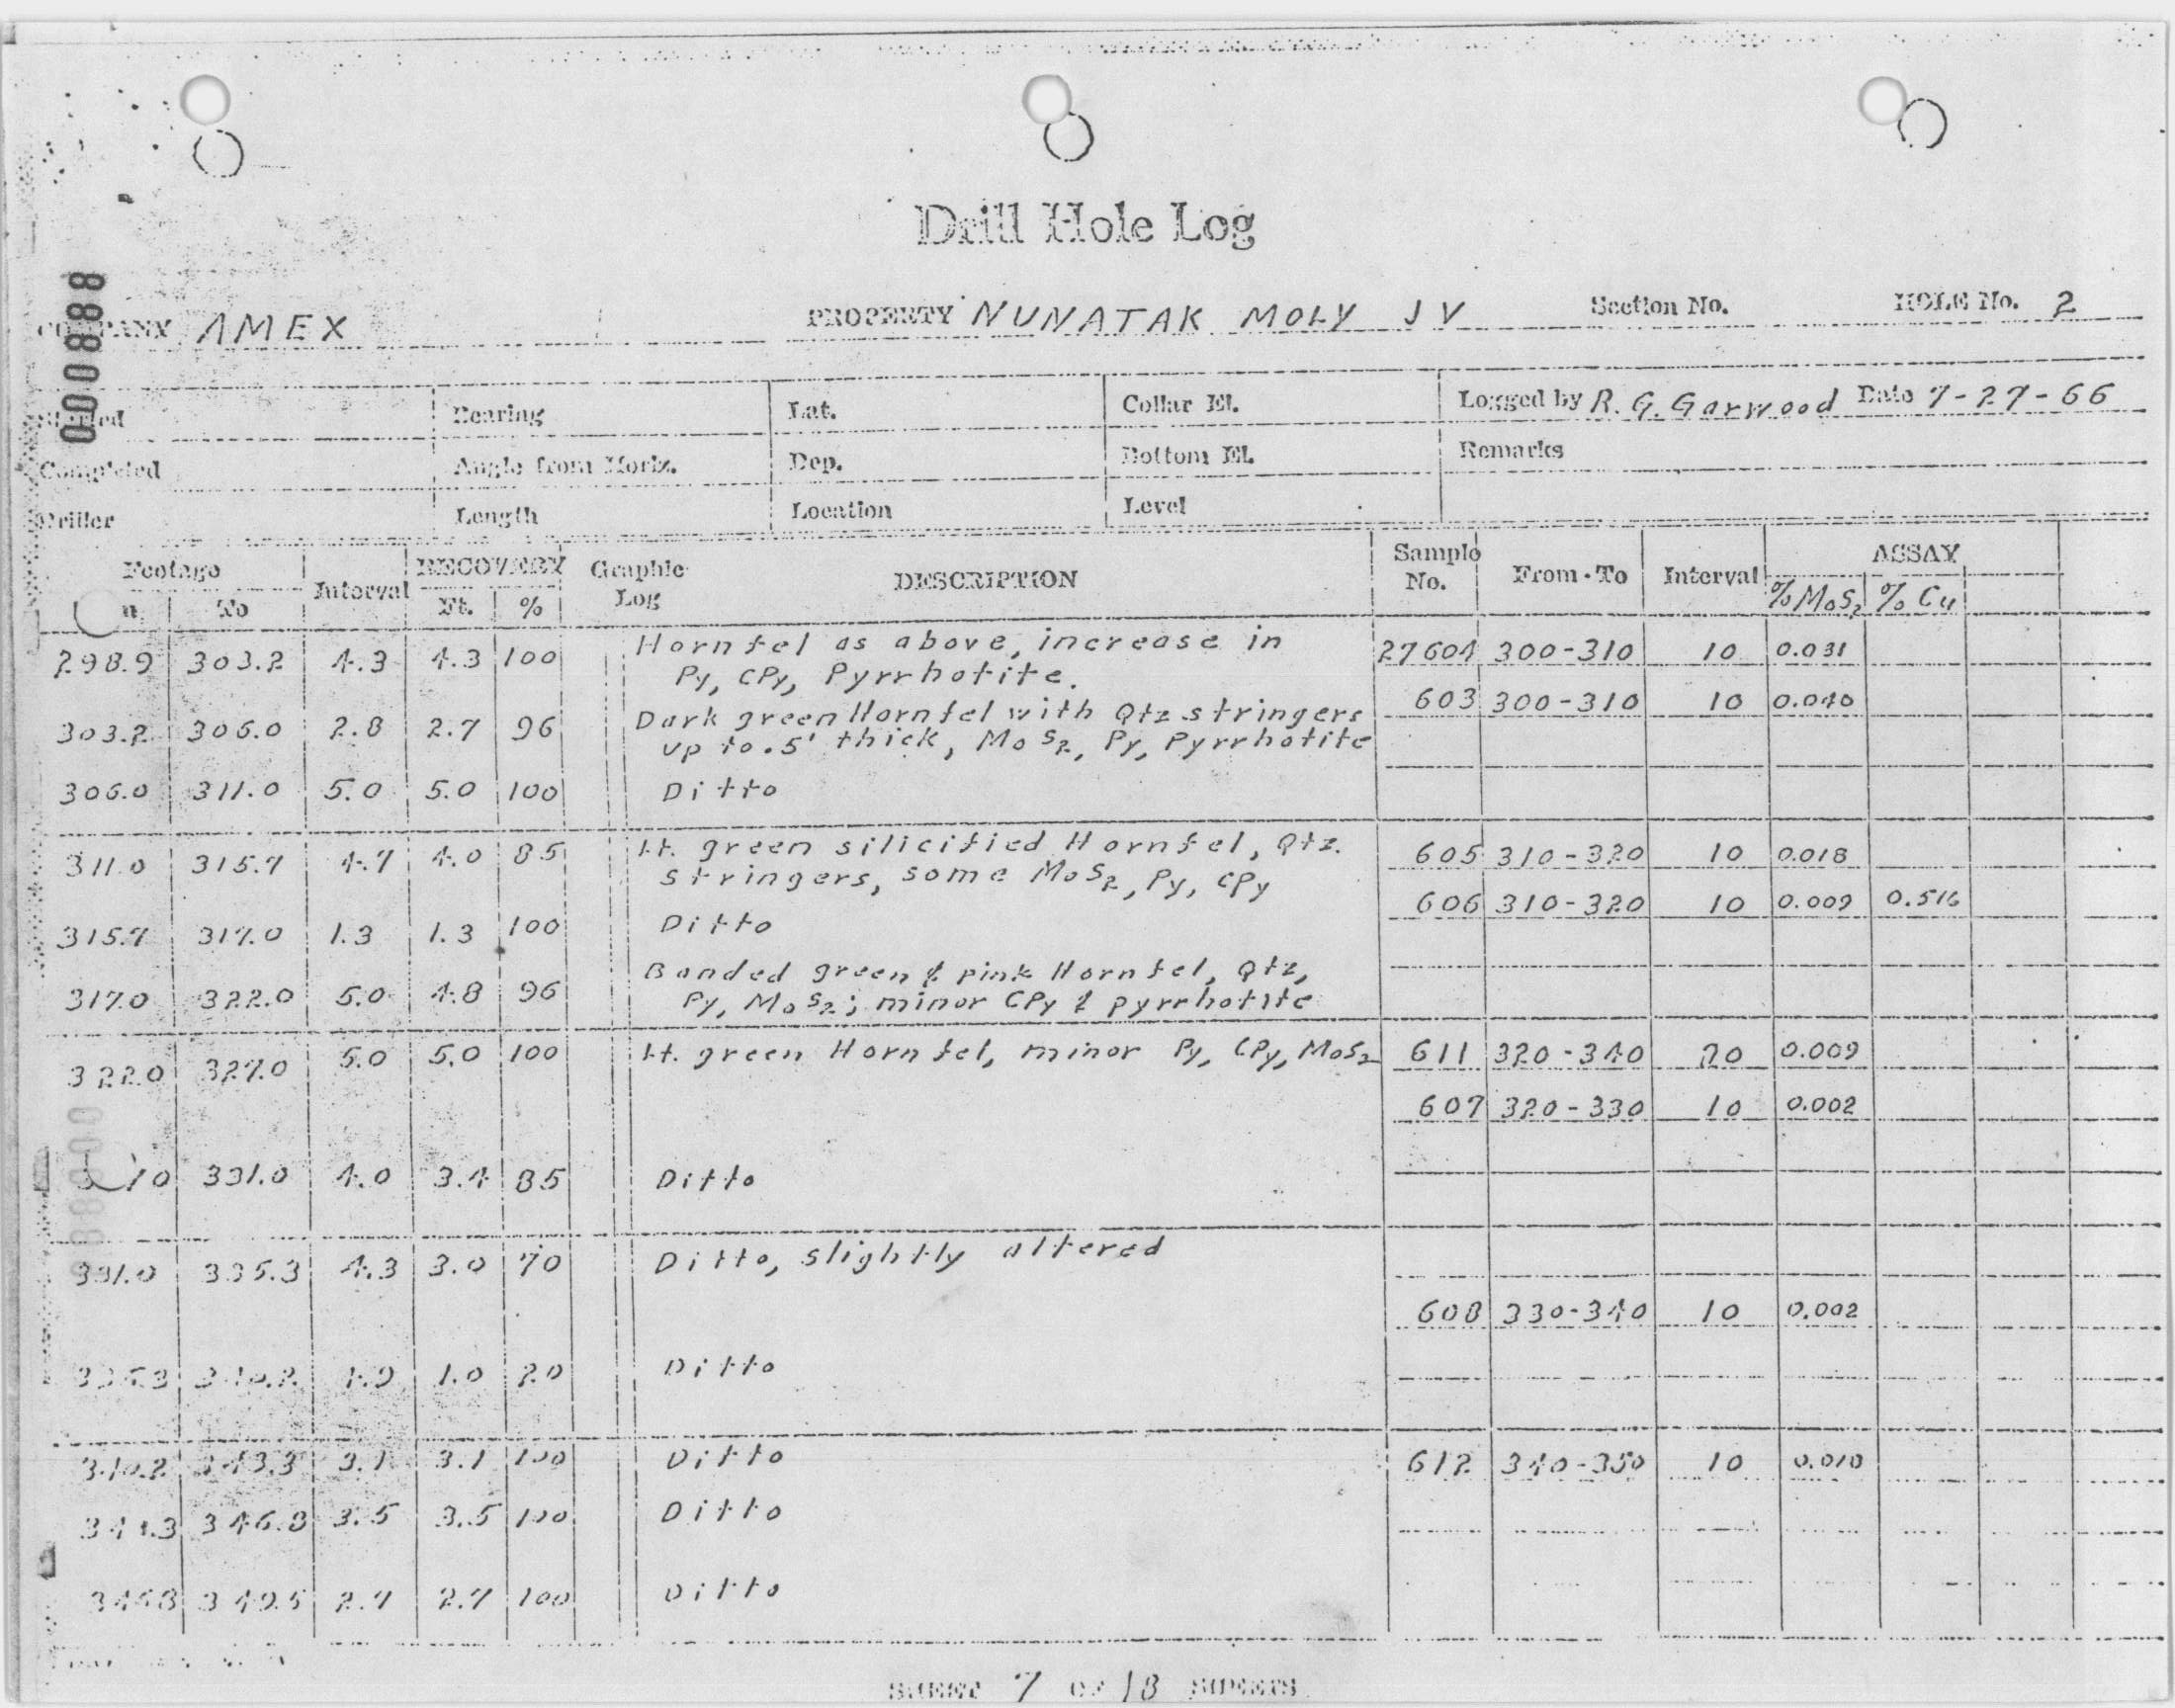 Drill Hole Log
000888
COMPANY AMEX PROPERTY NUNATAK MOLY JV Section No. HOLE No. 2
Started Bearing Lat. Collar El. Logged by R. G. Garwood Date 7-27-66
Completed Angle from Horiz. Dep. Bottom El. Remarks
Driller Length Location Level
Footage Interval RECOVERY Graphic Log DESCRIPTION Sample No. From-To Interval ASSAY
To Ft. % % MoS2 % Cu
298.9 303.2 4.3 4.3 100 Hornfel as above, increase in 27604 300-310 10 0.031
Py, CPy, Pyrrhotite.
603 300-310 10 0.040
303.2 306.0 2.8 2.7 96 Dark green Hornfel with Qtz stringers
up to .5' thick, MoS2, Py, Pyrrhotite
306.0 311.0 5.0 5.0 100 Ditto
311.0 315.7 4.7 4.0 85 Lt. green silicified Hornfel, Qtz. 605 310-320 10 0.018
stringers, some MoS2, Py, CPy
606 310-320 10 0.009 0.516
315.7 317.0 1.3 1.3 100 Ditto
317.0 322.0 5.0 4.8 96 Banded green & pink Hornfel, Qtz,
Py, MoS2; minor CPy & pyrrhotite
322.0 327.0 5.0 5.0 100 Lt. green Hornfel, minor Py, CPy, MoS2 611 320-340 20 0.009
607 320-330 10 0.002
331.0 4.0 3.4 85 Ditto
331.0 335.3 4.3 3.0 70 Ditto, slightly altered
608 330-340 10 0.002
335.3 340.2 4.9 1.0 20 Ditto
340.2 343.3 3.1 3.1 100 Ditto 612 340-350 10 0.010
343.3 346.8 3.5 3.5 100 Ditto
346.8 349.5 2.7 2.7 100 Ditto
SHEET 7 OF 18 SHEETS